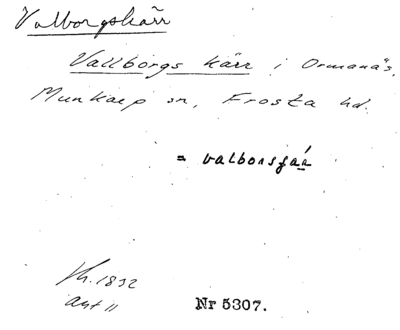 Valborgskärr
Vallborgs kärr i Ormanäs,
Munkarp sn, Frosta hd.
= valbors
1832
akt 11
Nr 5307.